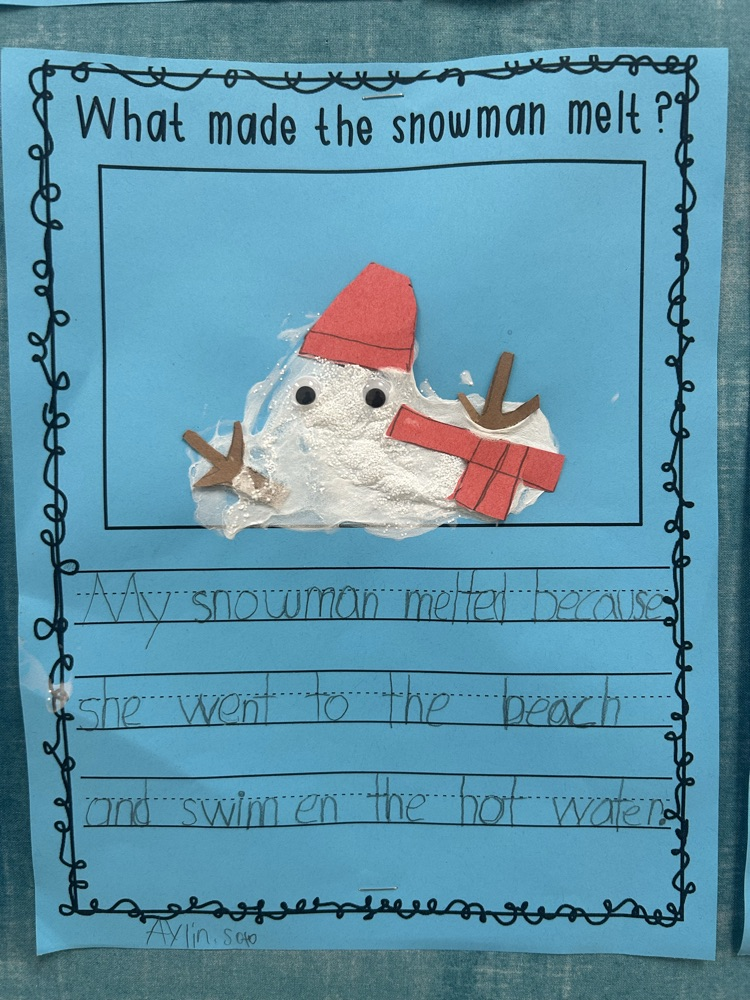 What made the snowman melt?
My snowman melted because
she went to the beach
and swim en the hot water.
Aylin. Soto